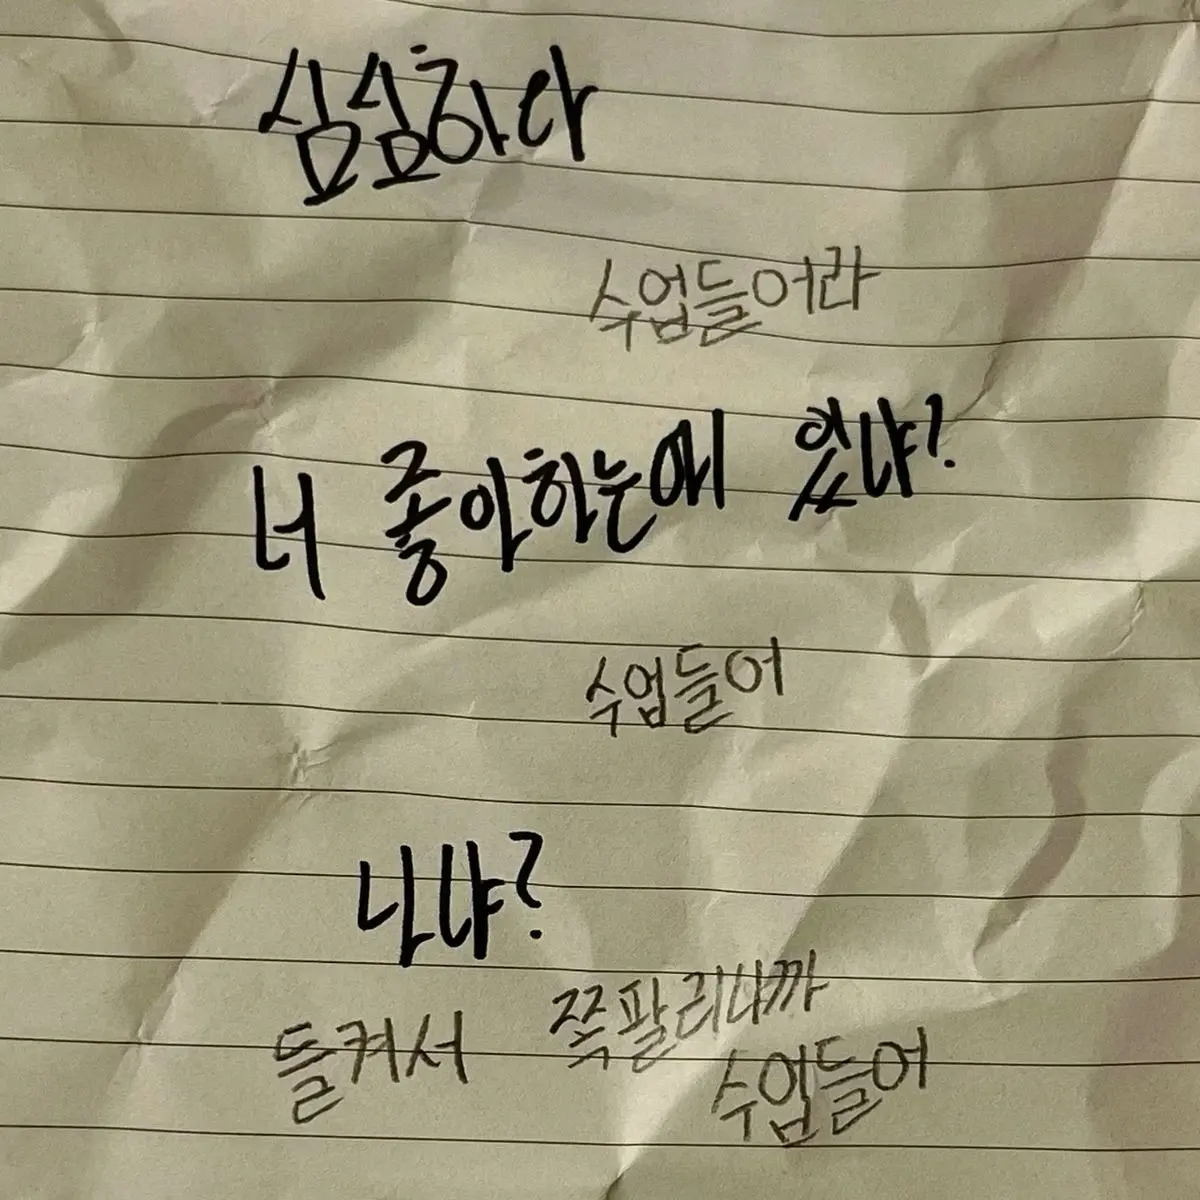 심심하다
수업들어라
너 좋아하는애 있냐?
수업들어
나냐?
들켜서 쪽팔리니까
수업들어